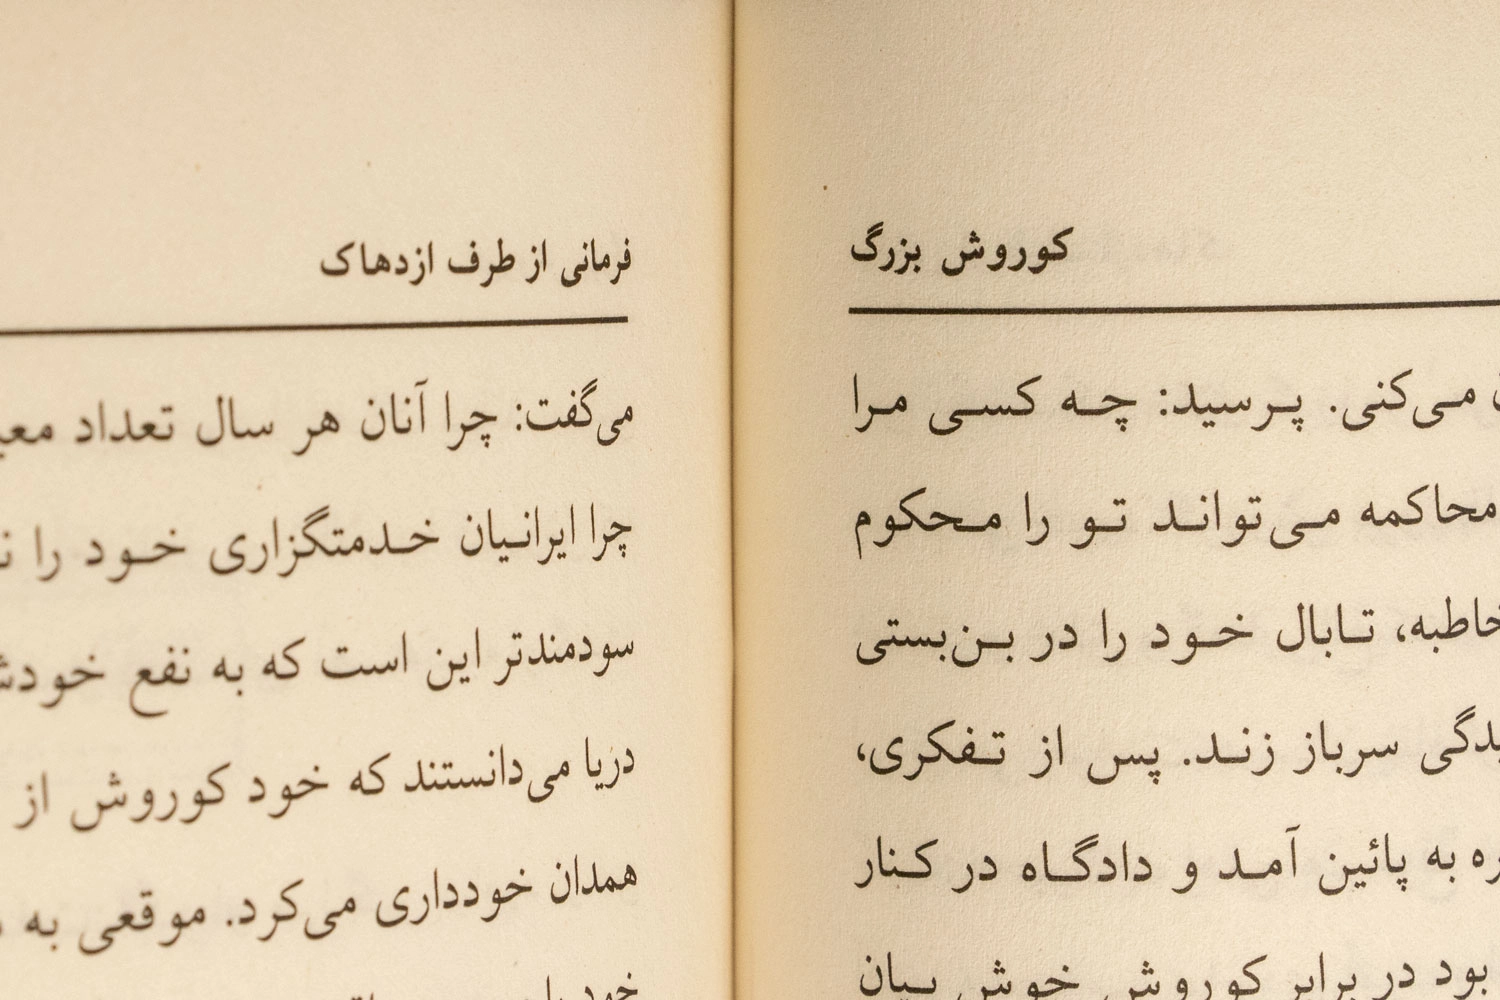 کوروش بزرگ
می‌کنی. پرسید: چه کسی مرا
محاکمه می‌تواند تو را محکوم
تابال خود را در بن‌بستی
سرباز زند. پس از تفکری،
به پائین آمد و دادگاه در کنار
بود در برابر کوروش خوش بیان
فرمانی از طرف ازدهاک
می‌گفت: چرا آنان هر سال تعداد
چرا ایرانیان خدمتگزاری خود را
سودمندتر این است که به نفع
دریا می‌دانستند که خود کوروش از
همدان خودداری می‌کرد. موقعی به